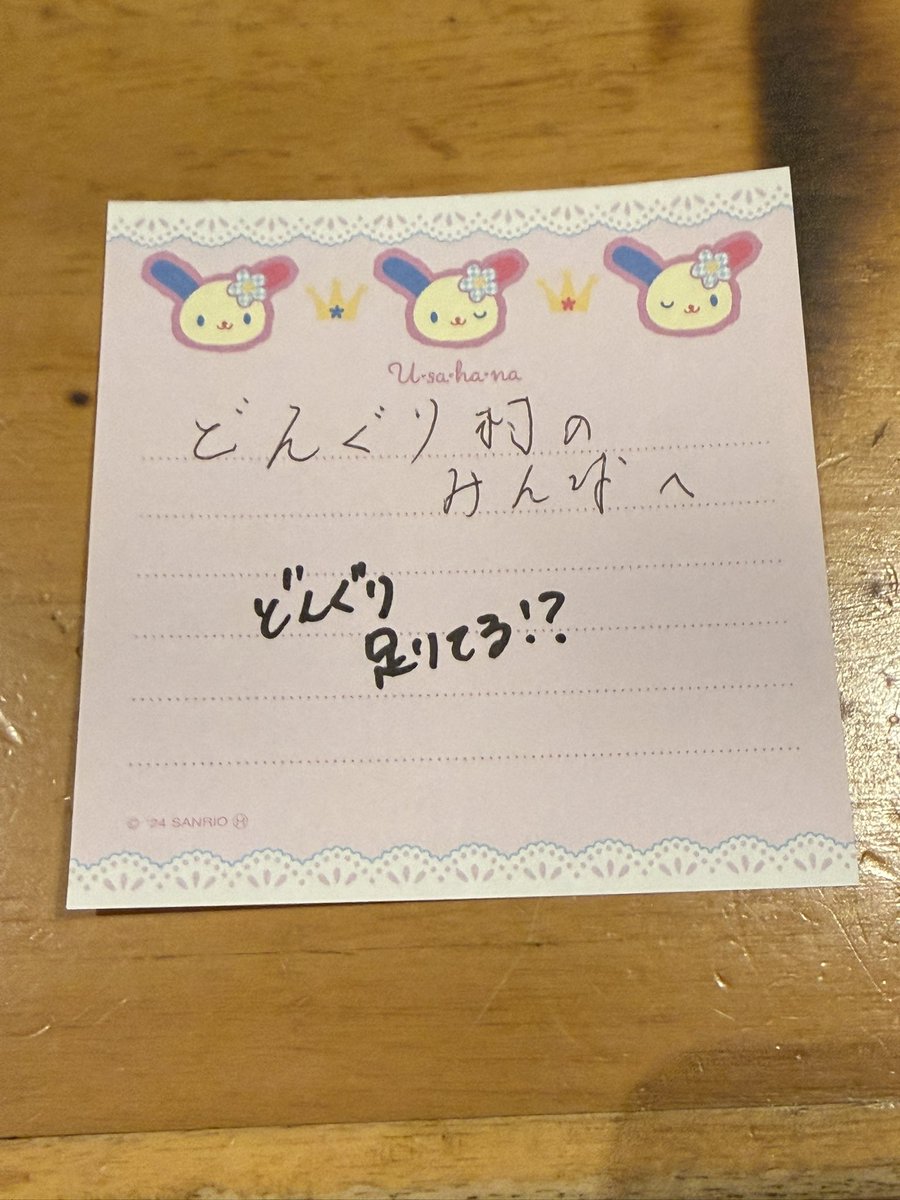 U·sa·ha·na
どんぐり村の
みんなへ
どんぐり
足りてる!?
© '24 SANRIO Ⓗ